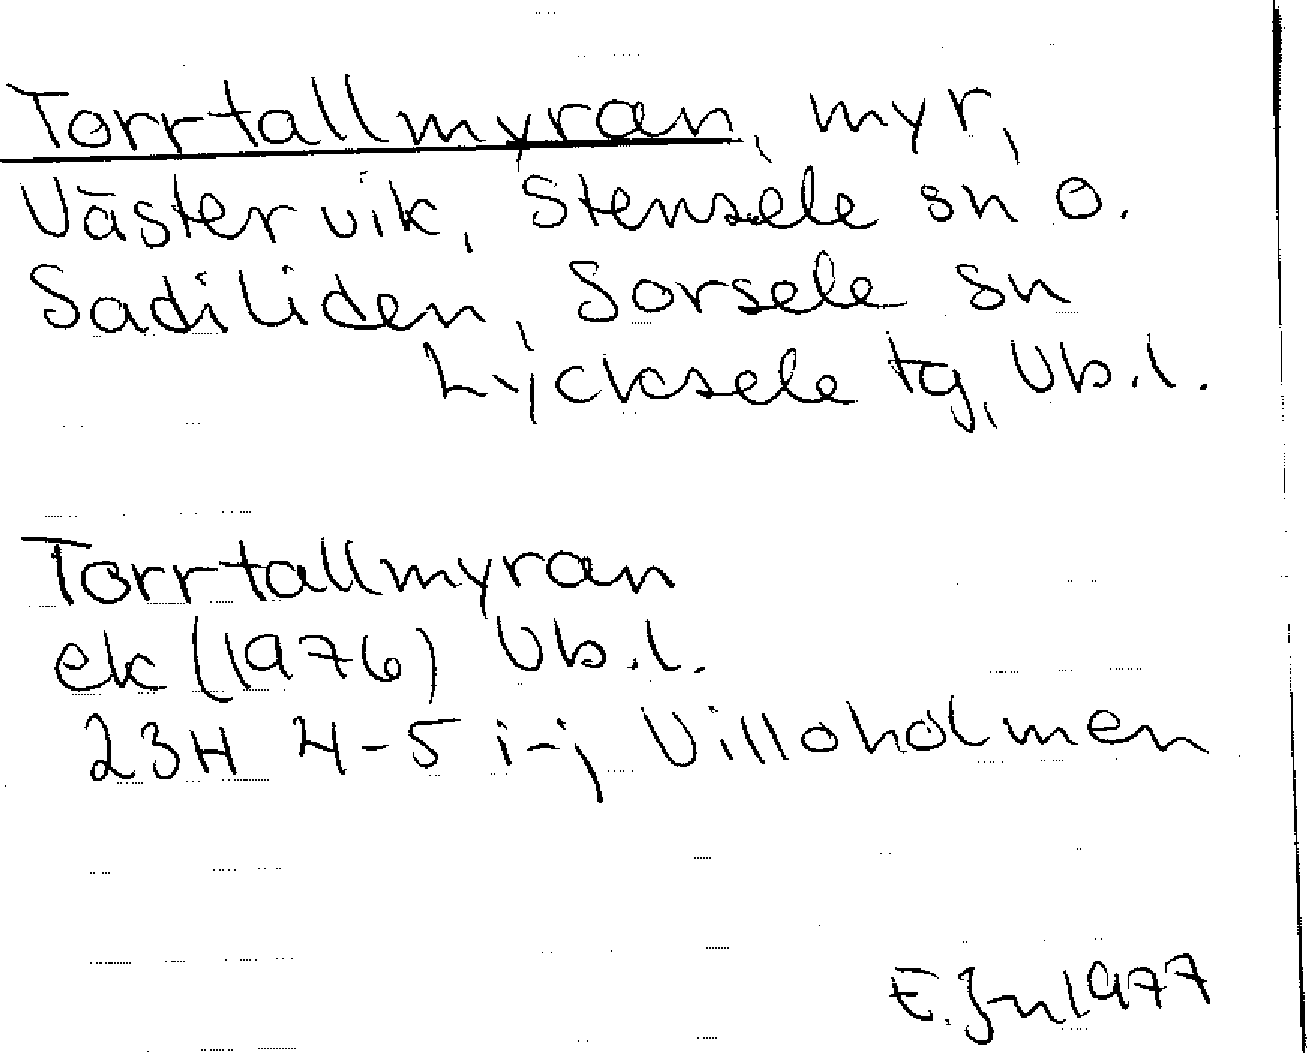 Torrtallmyran, myr,
Västervik, Stensele sn o.
Sadiliden, Sorsele sn
Lycksele tg, Vb.l.
Torrtallmyran
ek (1976) Vb.l.
23H 4-5 i-j Villoholmen
E. Jn 1977